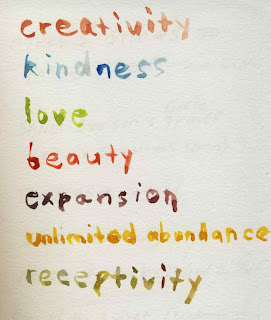 creativity
kindness
love
beauty
expansion
unlimited abundance
receptivity